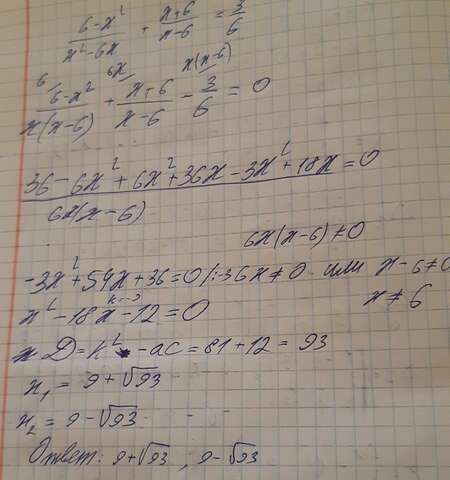 6-x² / x²-6x + x+6 / x-6 = 3/6
6/ 6x/ x(x-6)/
6-x² / x(x-6) + x+6 / x-6 - 3/6 = 0
36-6x²+6x²+36x-3x²+18x / 6x(x-6) = 0
6x(x-6)≠0
-3x²+54x+36=0 /:-3 6x≠0 или x-6≠0
x≠6
x²-18x-12=0
D=k²-ac=81+12=93
x₁=9+√93
x₂=9-√93
Ответ: 9+√93, 9-√93